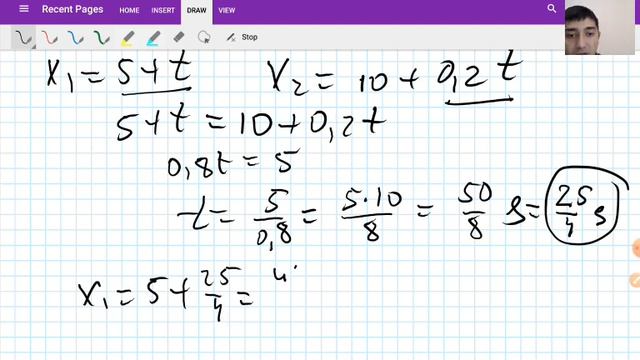 Recent Pages HOME INSERT DRAW VIEW
Stop
x₁ = 5+t x₂ = 10 + 0,2t
5+t = 10+0,2t
0,8t = 5
t = 5/0,8 = 5·10/8 = 50/8 s = 25/4 s
x₁ = 5 + 25/4 =